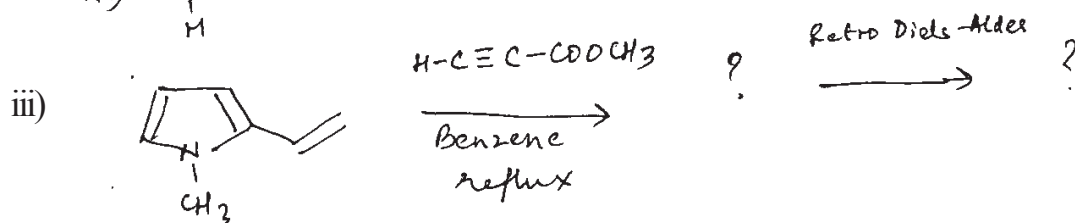 H
iii)
N
CH3
H-C≡C-COOCH3
Benzene
reflux
?
Retro Diels-Alder
?